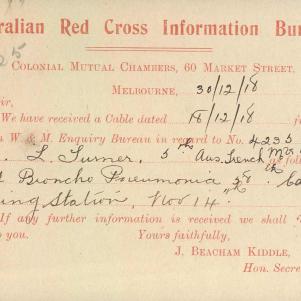 ralian Red Cross Information Bu
Colonial Mutual Chambers, 60 Market Street.
Melbourne, 30/12/18
ir,
We have received a Cable dated 18/12/18 f
n W & M Enquiry Bureau in regard to No. 4235
L. Turner, 5th Aus. Trench as follo
Broncho Pneumonia
ing Station, Nov 14.
If any further information is received we shall
o you. Yours faithfully,
J. BEACHAM KIDDLE,
Hon. Secre